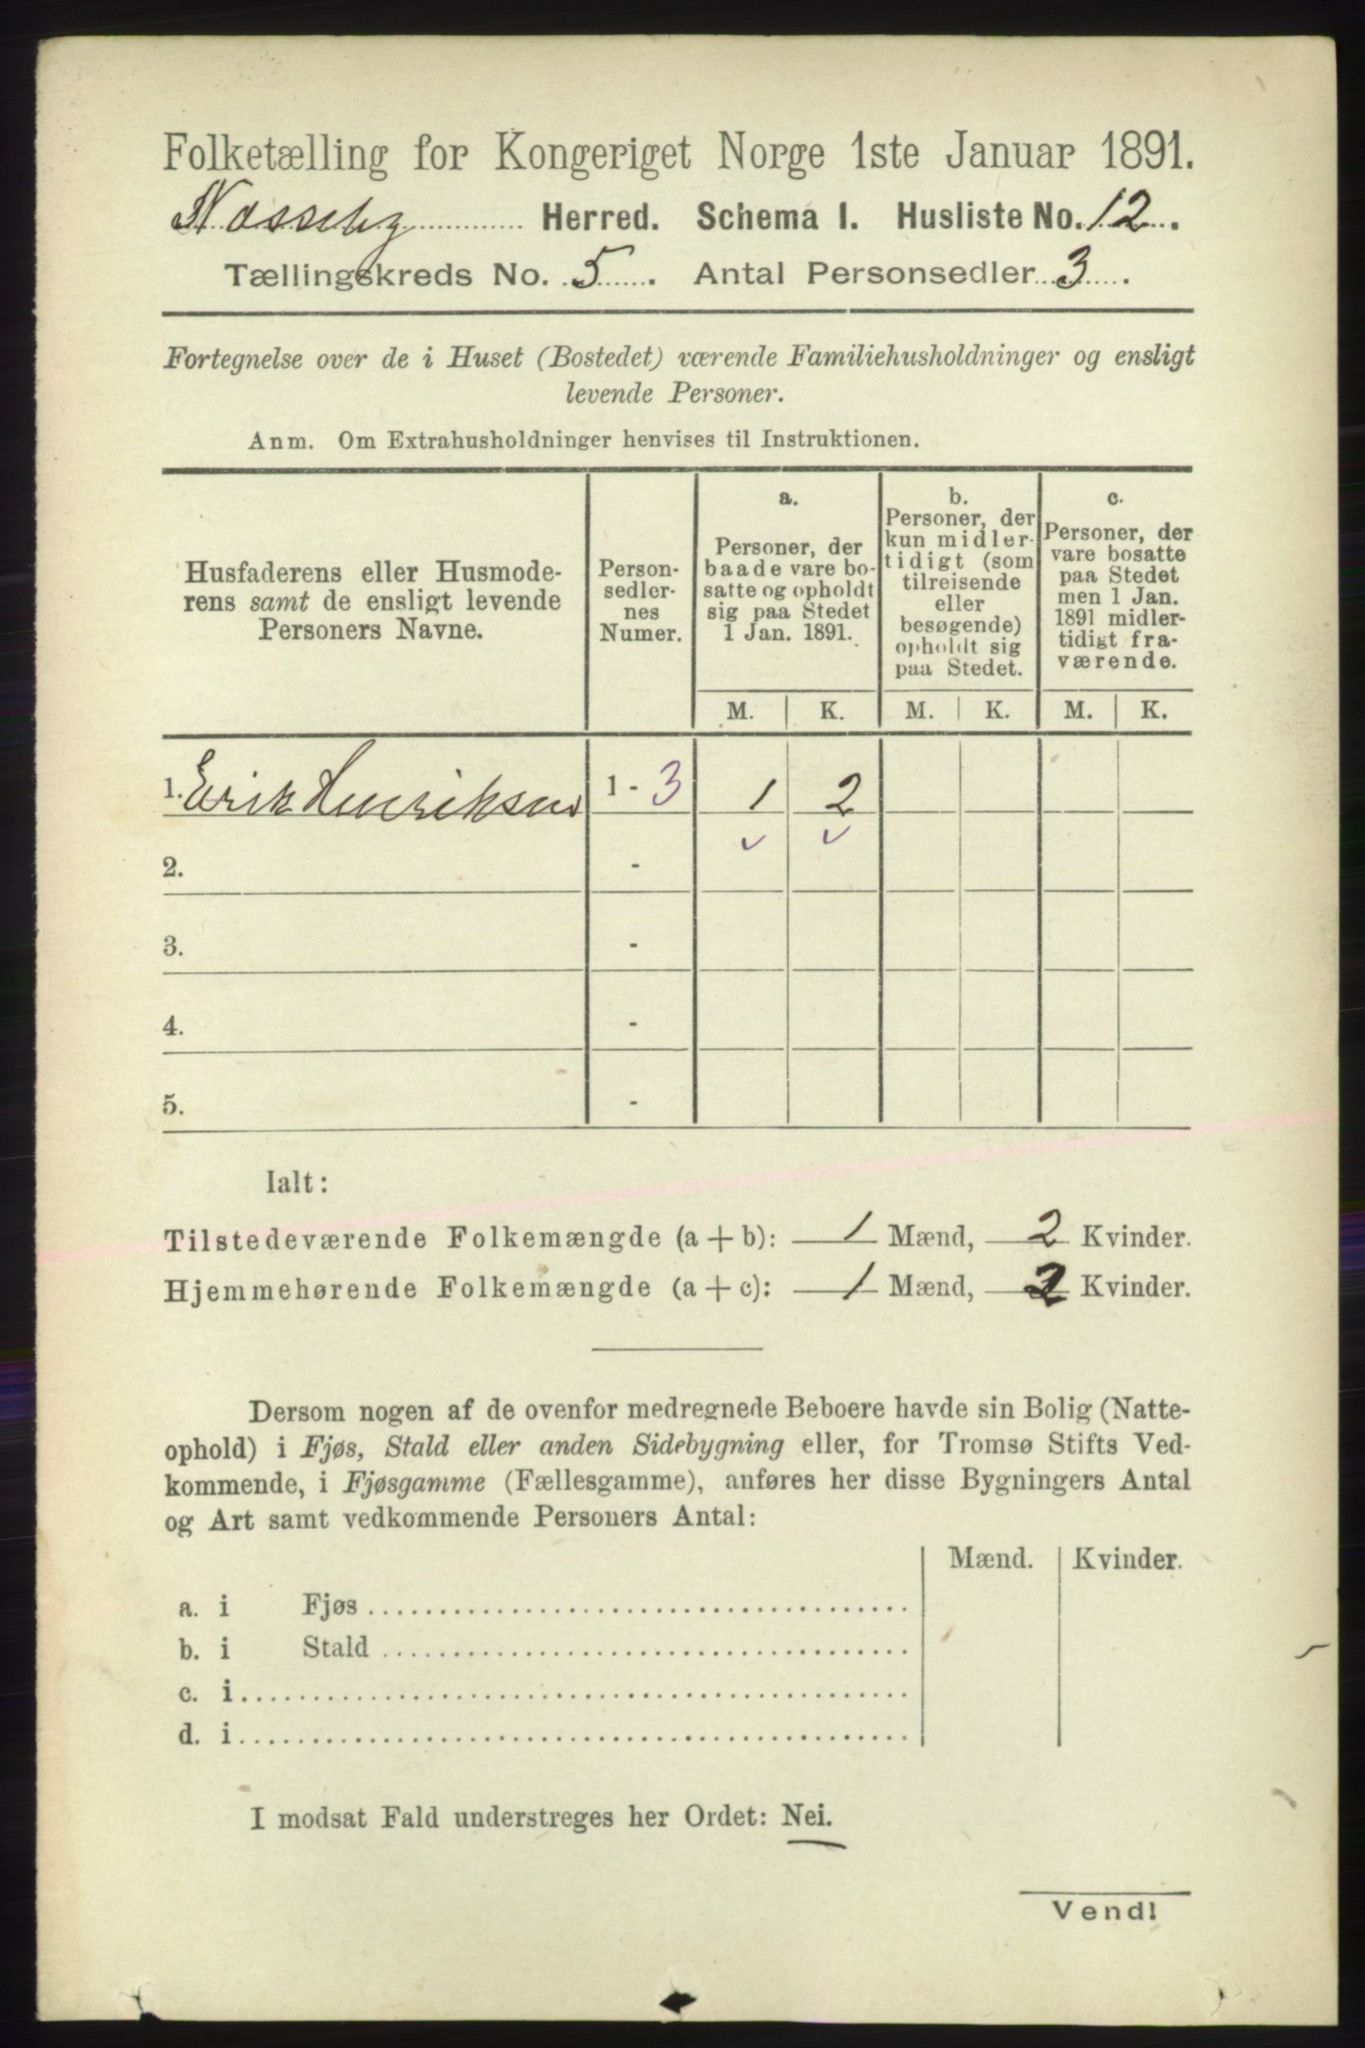 Folketælling for Kongeriget Norge 1ste Januar 1891.
Næsseby Herred. Schema I. Husliste No. 12.
Tællingskreds No. 5. Antal Personsedler 3.
Fortegnelse over de i Huset (Bostedet) værende Familiehusholdninger og ensligt
levende Personer.
Anm. Om Extrahusholdninger henvises til Instruktionen.
Husfaderens eller Husmode-
rens samt de ensligt levende
Personers Navne.
Person-
sedler-
nes
Numer.
a.
Personer, der
baade vare bo-
satte og opholdt
sig paa Stedet
1 Jan. 1891.
b.
Personer, der
kun midler-
tidigt (som
tilreisende
eller
besøgende)
opholdt sig
paa Stedet.
c.
Personer, der
vare bosatte
paa Stedet
men 1 Jan.
1891 midler-
tidigt fra-
værende.
M. K. M. K. M. K.
1. Erik Henriksen 1 - 3 1 2
2. -
3. -
4. -
5. -
Ialt:
Tilstedeværende Folkemængde (a + b): 1 Mænd, 2 Kvinder.
Hjemmehørende Folkemængde (a + c): 1 Mænd, 2 Kvinder.
Dersom nogen af de ovenfor medregnede Beboere havde sin Bolig (Natte-
ophold) i Fjøs, Stald eller anden Sidebygning eller, for Tromsø Stifts Ved-
kommende, i Fjøsgamme (Fællesgamme), anføres her disse Bygningers Antal
og Art samt vedkommende Personers Antal:
Mænd. Kvinder.
a. i Fjøs
b. i Stald
c. i
d. i
I modsat Fald understreges her Ordet: Nei.
Vend!